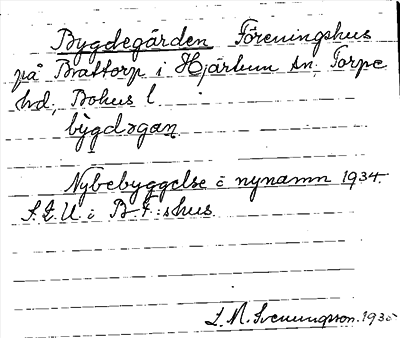 Bygdegården Föreningshus
på Brattorp i Hjärtum sn, Torpe
hd, Bohus l
bỳgdəgaṇ
Nybebyggelse o nynamn 1934.
S.L.U. i B.F:shus.
L.M. Svenungsson. 1935